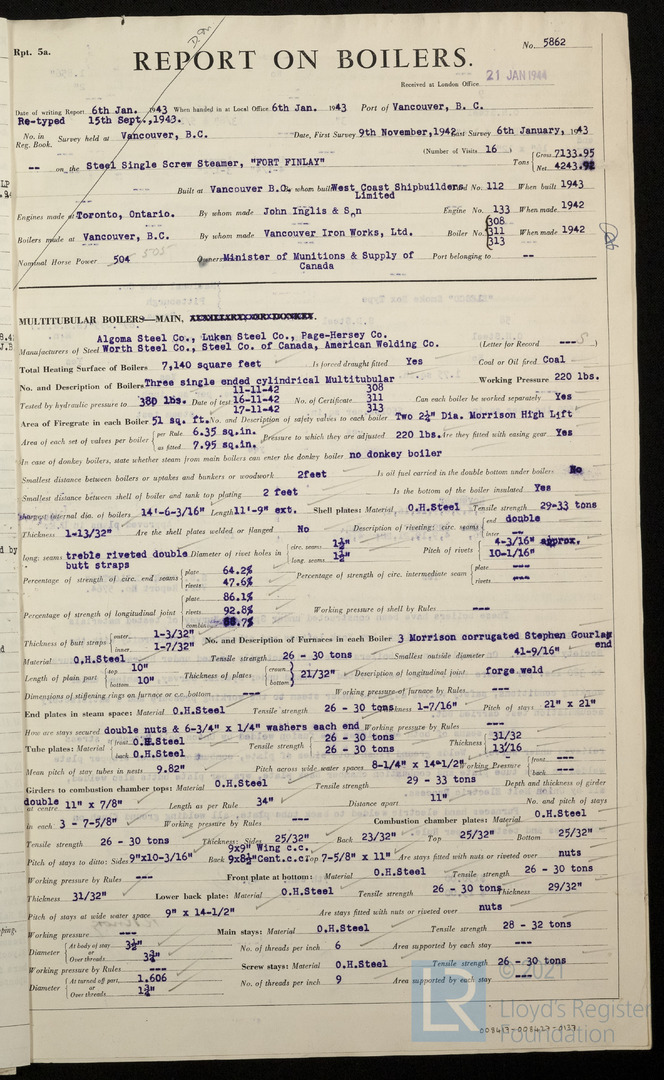 Rpt. 5a.
No. 5862
REPORT ON BOILERS.
Received at London Office 21 JAN 1944
Date of writing Report 6th Jan. 1943 When handed in at Local Office 6th Jan. 1943 Port of Vancouver, B. C.
Re-typed 15th Sept., 1943.
No. in Reg. Book. Survey held at Vancouver, B.C. Date, First Survey 9th November, 1942 Last Survey 6th January, 1943
(Number of Visits 16 )
-- on the Steel Single Screw Steamer, "FORT FINLAY" Tons { Gross 7133.95
Net 4243.92
Built at Vancouver B.C. By whom built West Coast Shipbuilders Limited Yard No. 112 When built 1943
Engines made at Toronto, Ontario. By whom made John Inglis & Son Engine No. 133 When made 1942
Boilers made at Vancouver, B.C. By whom made Vancouver Iron Works, Ltd. Boiler No. { 308 311 313 When made 1942
Nominal Horse Power 504 505 Owners Minister of Munitions & Supply of Canada Port belonging to --
MULTITUBULAR BOILERS—MAIN, AUXILIARY OR DONKEY.
Algoma Steel Co., Luken Steel Co., Page-Hersey Co.
Manufacturers of Steel Worth Steel Co., Steel Co. of Canada, American Welding Co. (Letter for Record --- S )
Total Heating Surface of Boilers 7,140 square feet Is forced draught fitted Yes Coal or Oil fired Coal
No. and Description of Boilers Three single ended cylindrical Multitubular Working Pressure 220 lbs.
Tested by hydraulic pressure to 380 lbs. Date of test 11-11-42 16-11-42 17-11-42 No. of Certificate 308 311 313 Can each boiler be worked separately Yes
Area of Firegrate in each Boiler 51 sq. ft. No. and Description of safety valves to each boiler Two 2½" Dia. Morrison High Lift
Area of each set of valves per boiler { per Rule 6.35 sq.in. as fitted 7.95 sq.in. Pressure to which they are adjusted 220 lbs. Are they fitted with easing gear Yes
In case of donkey boilers, state whether steam from main boilers can enter the donkey boiler no donkey boiler
Smallest distance between boilers or uptakes and bunkers or woodwork 2feet Is oil fuel carried in the double bottom under boilers No
Smallest distance between shell of boiler and tank top plating 2 feet Is the bottom of the boiler insulated Yes
Largest internal dia. of boilers 14'-6-3/16" Length 11'-9" ext. Shell plates: Material O.H.Steel Tensile strength 29-33 tons
Thickness 1-13/32" Are the shell plates welded or flanged No Description of riveting: circ. seams { end double inter. ---
long. seams treble riveted double butt straps Diameter of rivet holes in { circ. seams 1½" long. seams 1½" Pitch of rivets { 4-3/16" approx. 10-1/16"
Percentage of strength of circ. end seams { plate 64.2% rivets 47.6% Percentage of strength of circ. intermediate seam { plate --- rivets ---
Percentage of strength of longitudinal joint { plate 86.1% rivets 92.8% combined Working pressure of shell by Rules ---
Thickness of butt straps { outer 1-3/32" inner 1-7/32" No. and Description of Furnaces in each Boiler 3 Morrison corrugated Stephen Gourlay end
Material O.H.Steel Tensile strength 26 - 30 tons Smallest outside diameter 41-9/16"
Length of plain part { top 10" bottom 10" Thickness of plates { crown bottom } 21/32" Description of longitudinal joint forge weld
Dimensions of stiffening rings on furnace or c.c. bottom --- Working pressure of furnace by Rules ---
End plates in steam space: Material O.H.Steel Tensile strength 26 - 30 tons Thickness 1-7/16" Pitch of stays 21" x 21"
How are stays secured double nuts & 6-3/4" x 1/4" washers each end Working pressure by Rules ---
Tube plates: Material { front O.H.Steel back O.H.Steel Tensile strength { 26 - 30 tons 26 - 30 tons Thickness { 31/32 13/16
Mean pitch of stay tubes in nests 9.82" Pitch across wide water spaces 8-1/4" x 14-1/2" Working Pressure { front --- back ---
Girders to combustion chamber tops: Material O.H.Steel Tensile strength 29 - 33 tons Depth and thickness of girder
at centre double 11" x 7/8" Length as per Rule 34" Distance apart 11" No. and pitch of stays
in each 3 - 7-5/8" Working pressure by Rules --- Combustion chamber plates: Material O.H.Steel
Tensile strength 26 - 30 tons Thickness: Sides 25/32" Back 23/32" Top 25/32" Bottom 25/32"
Pitch of stays to ditto: Sides 9"x10-3/16" Back 9x9" Wing c.c. 9x8½"Cent.c.c. Top 7-5/8" x 11" Are stays fitted with nuts or riveted over nuts
Working pressure by Rules --- Front plate at bottom: Material O.H.Steel Tensile strength 26 - 30 tons
Thickness 31/32" Lower back plate: Material O.H.Steel Tensile strength 26 - 30 tons Thickness 29/32"
Pitch of stays at wide water space 9" x 14-1/2" Are stays fitted with nuts or riveted over nuts
Working pressure --- Main stays: Material O.H.Steel Tensile strength 28 - 32 tons
Diameter { At body of stay 3½" or Over threads 3¾" No. of threads per inch 6 Area supported by each stay ---
Working pressure by Rules --- Screw stays: Material O.H.Steel Tensile strength 26 - 30 tons
Diameter { At turned off part 1.606 or Over threads 1¾" No. of threads per inch 9 Area supported by each stay ---
LR © 2021
Lloyd's Register
Foundation
008413-008427-0137